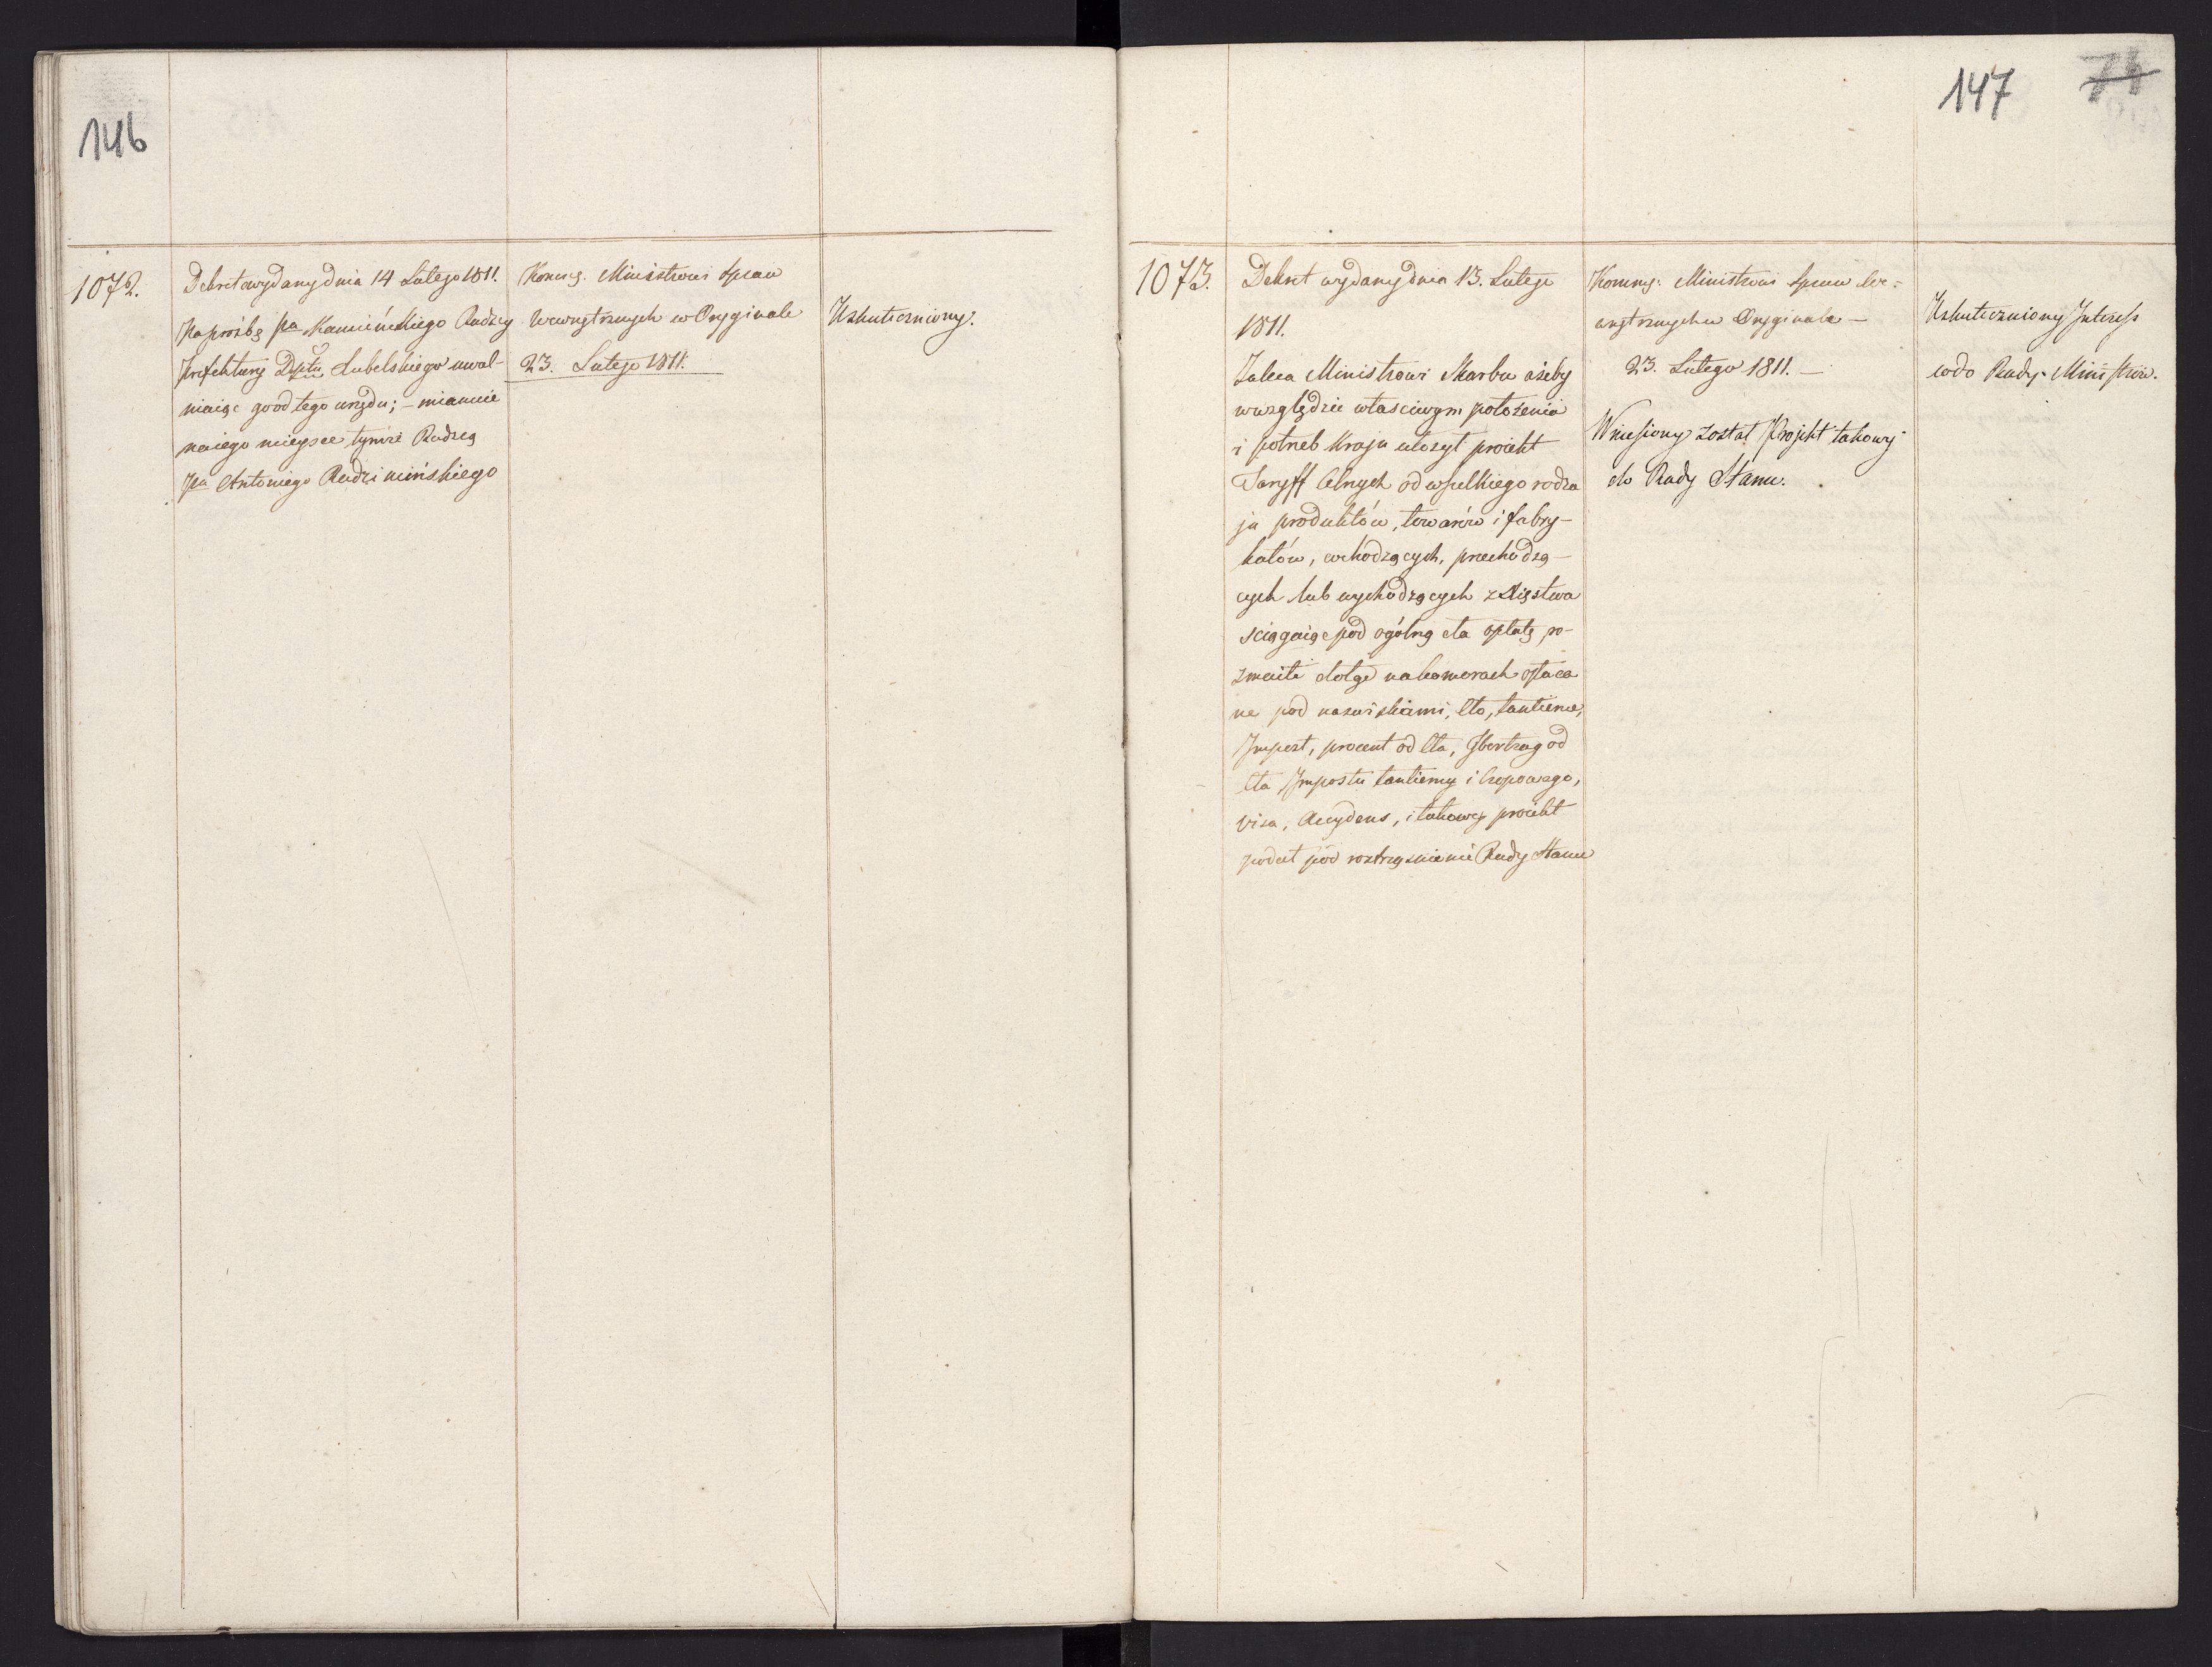 146
1072.
Dekret wydany dnia 14 Lutego 1811.
Na prosbę pa Kamieńskiego Radzcy
Prefektury Dptu Lubelskiego uwal-
niaiąc go od tego urzędu; – mianuie
na iego mieysce tymże Radzcą
pa Antoniego Radzimińskiego
Kommg. Ministrowi Spraw
Wewnętrznych w Oryginale
23. Lutego 1811.
Uskuteczniony.
147 74
1073.
Dekret wydany dnia 13. Lutego
1811.
Zaleca Ministrowi Skarbu ażeby
w względzie własciwym położenia
i potrzeb Kraju ułożył proiekt
Taryff Celnych od wszelkiego rodza
ju produktów, towarów i fabry-
katów, wchodzących, przechodzą-
cych lub wychodzących z Xięstwa
sciągaiąc pod ogólną cła opłatę ro-
zmaite dotąd na komorach opłaca
ne pod nazwiskami, Cło, tantiema,
Impost, procent od Cła, od
Cła Impostu tantiemy i Czopowego,
Viza, Accydens, i takowy proiekt
podał pod roztrząsnienie Rady Stanu
Kommg. Ministrowi Spraw We-
wnętrznych w Oryginale –
23. Lutego 1811. –
Wniesiony został Projekt takowy
do Rady Stanu.
Uskuteczniony Interess
codo Rady Ministrów.